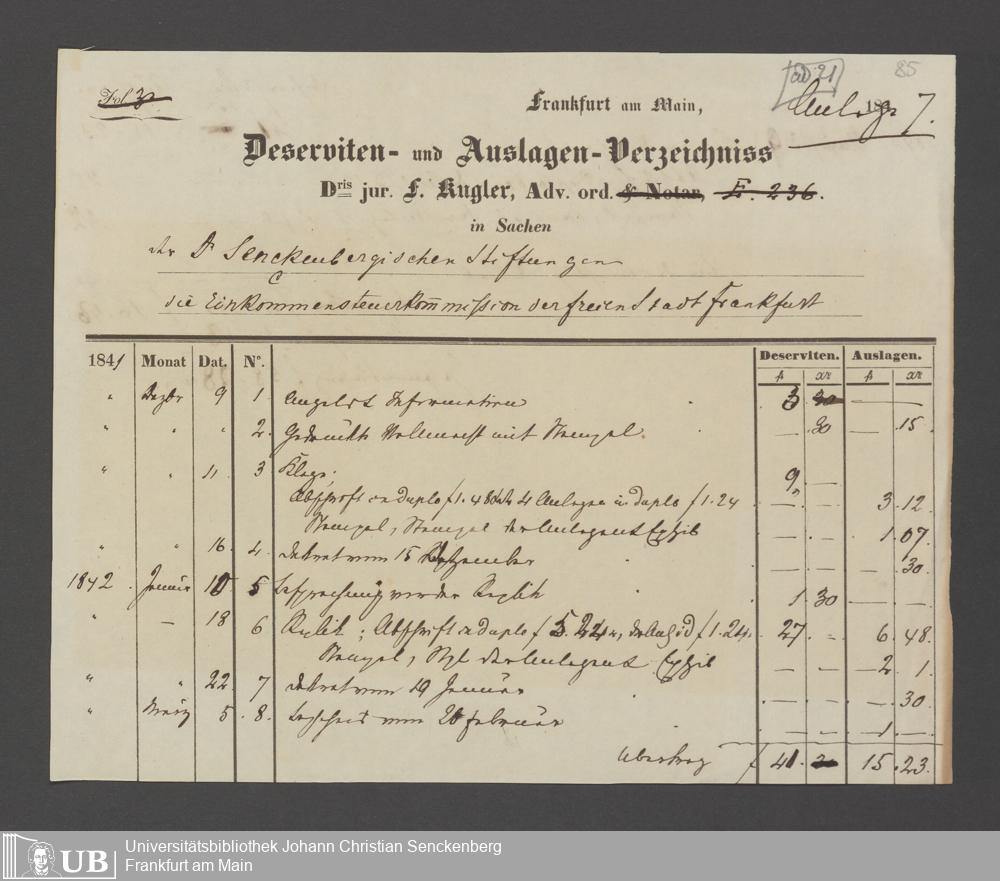 ad 21 85
Fol 32
Frankfurt am Main, 183 Anlage 7.
Deserviten- und Auslagen-Verzeichniss
Dris jur. F. Kugler, Adv. ord. & Notar, E. 236.
in Sachen
der Dr Senckenbergischen Stiftungen
C
die Einkommensteuerkommission der freien Stadt Frankfurt
1841 Monat Dat. No. Deserviten. Auslagen.
f xr f xr
" Dezbr 9 1 Information 3 30 — —
" " " 2. Gedruckte Vollmacht mit Stempel. — 30 — 15.
" " 11 3 Klage; 9 —
Abschrift in duplo f 1. 48 4 Anlagen in duplo f 1. 24 — — 3. 12
Stempel, Stempel der Anlagen & Exhib — — 1. 07.
" " 16. 4. Dekret vom 15 Dezember — — — 30.
1842. Januar 10 5 Besprechung wegen der Replik 1 30 — —
" — 18 6 Replik; Abschrift in duplo f 5. 24 f 1. 24. 27. — 6. 48.
Stempel, Stpl der Anlagen & Exhib — — 2. 1.
" " 22. 7 Dekret vom 19 Januar — — — 30.
" März 5. 8. Bescheid vom 26 Februar — — 1. —
Übertrag f 41. 15. 23.
UB
Universitätsbibliothek Johann Christian Senckenberg
Frankfurt am Main